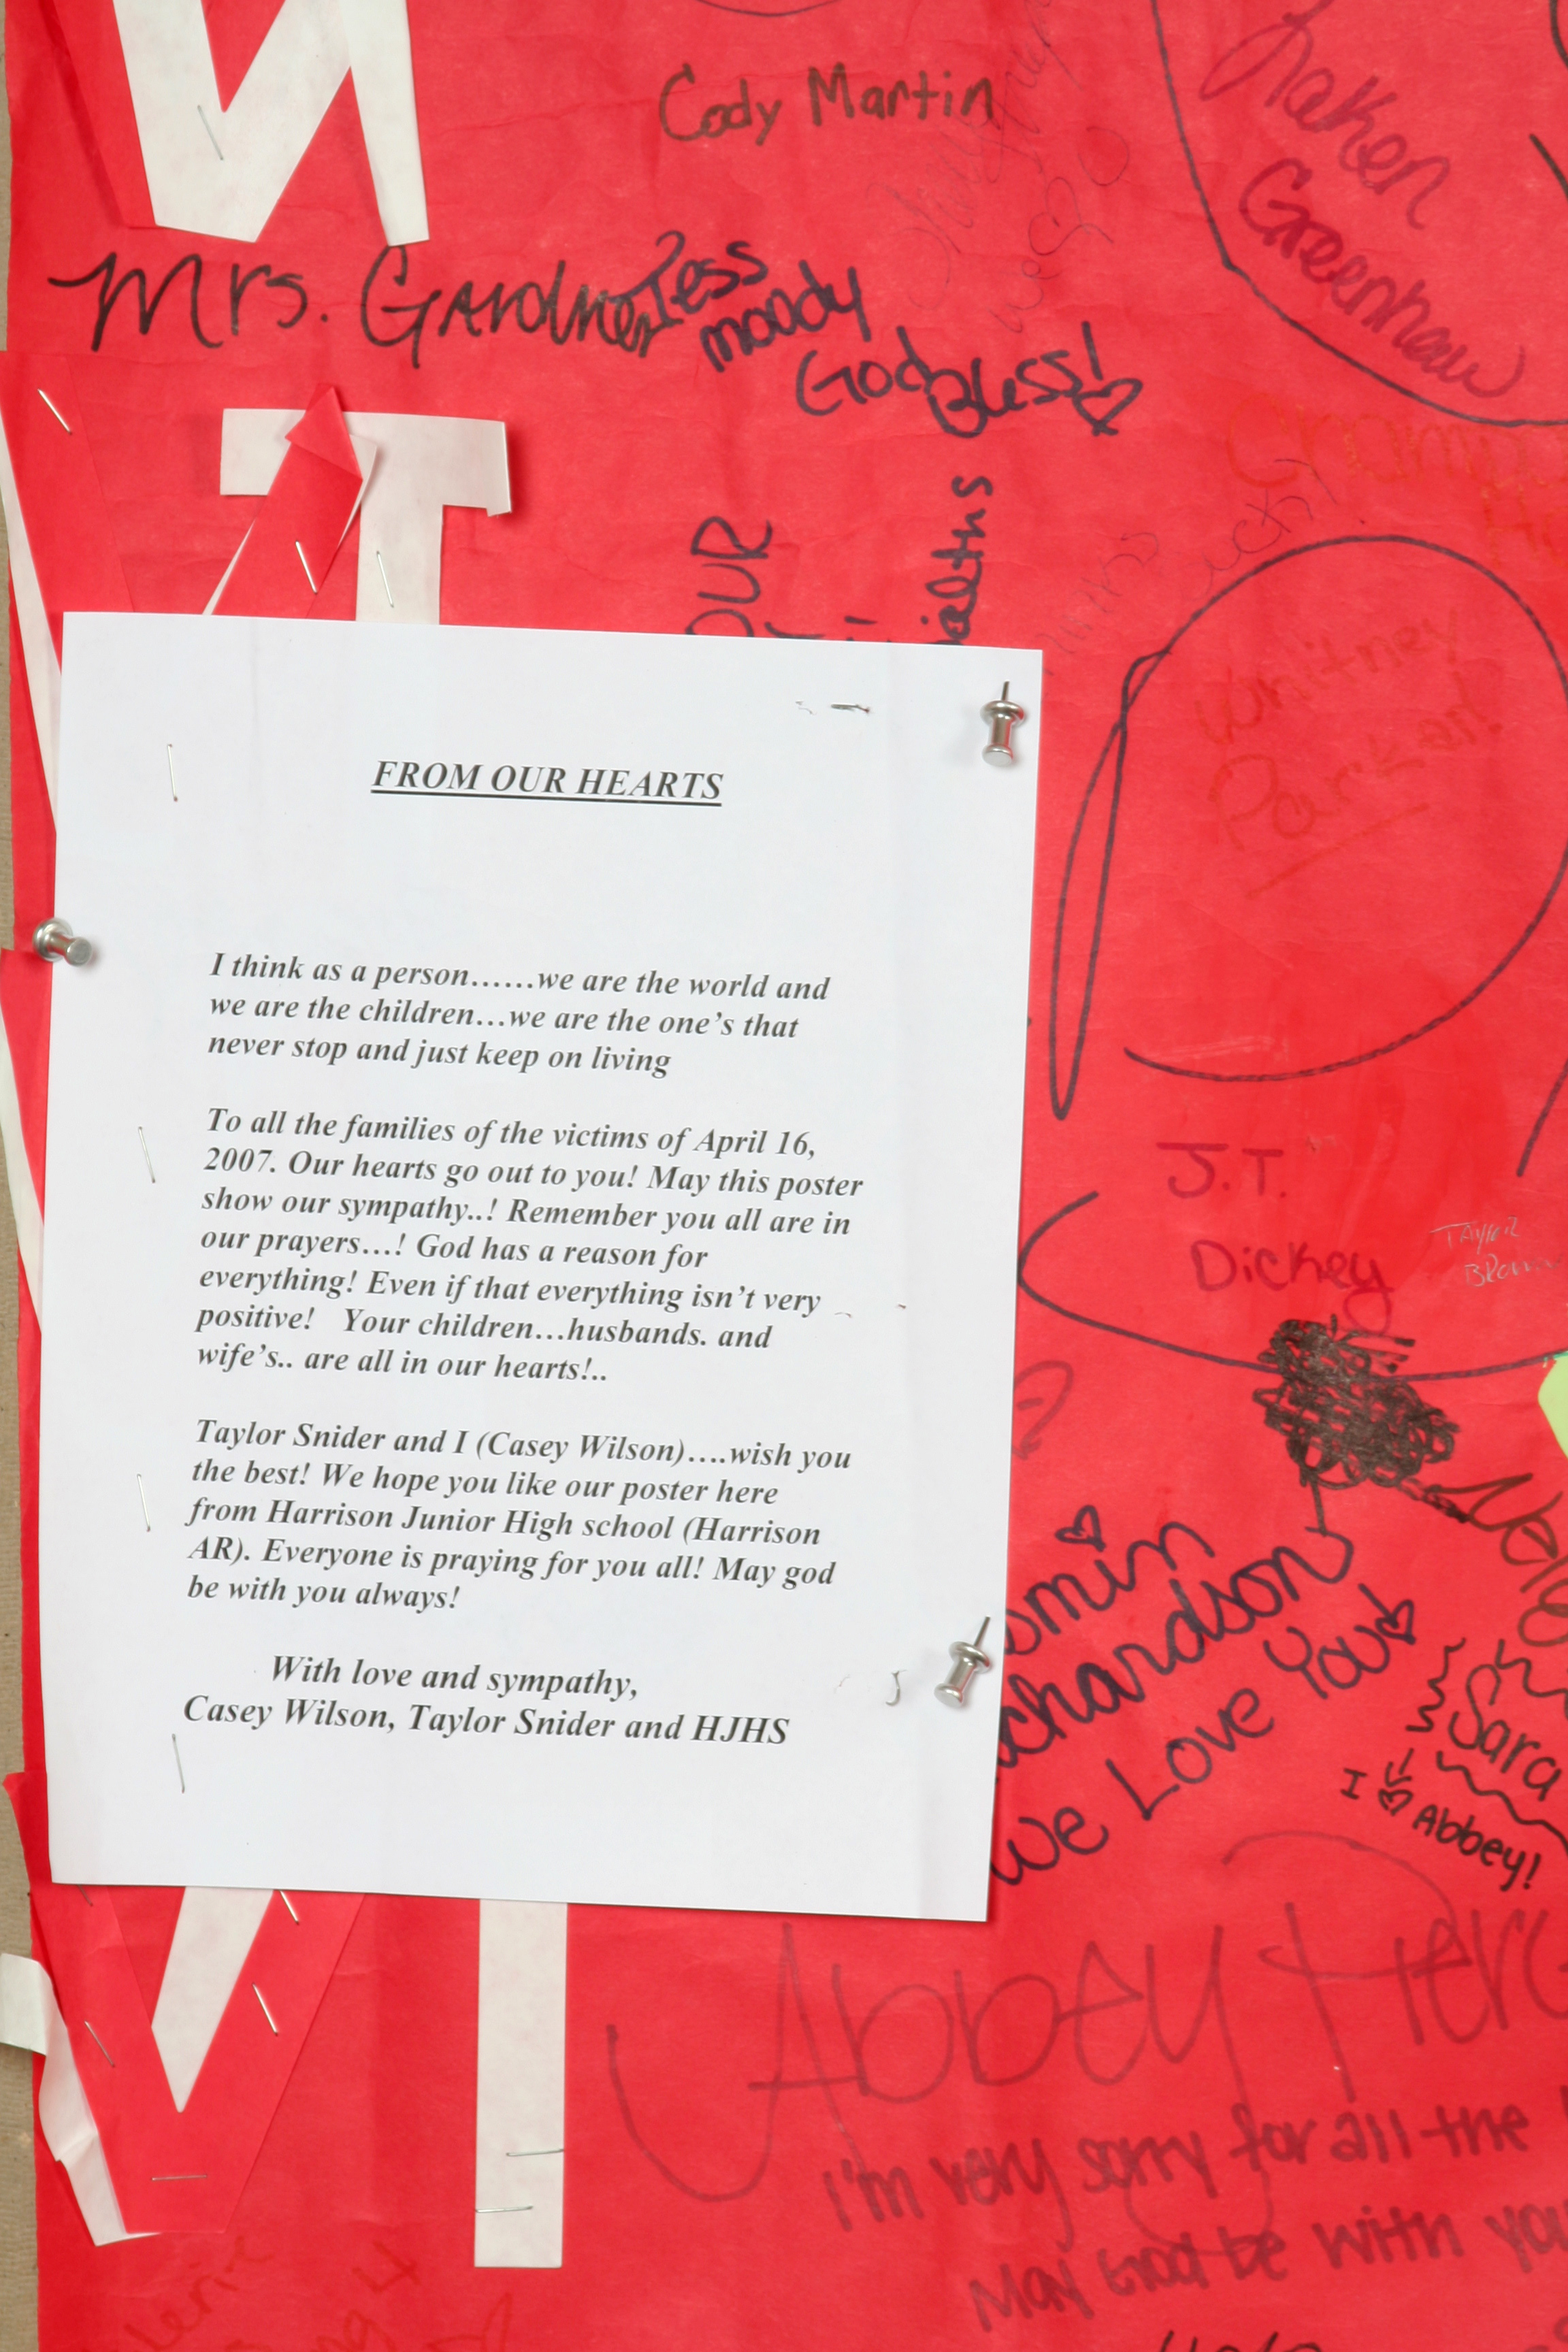 Cody Martin
Greenhaw
Mrs. Gardner
Tess
moody
God Bless!
OUR
FROM OUR HEARTS
I think as a person……we are the world and
we are the children…we are the one’s that
never stop and just keep on living
To all the families of the victims of April 16,
2007. Our hearts go out to you! May this poster
show our sympathy..! Remember you all are in
our prayers…! God has a reason for
everything! Even if that everything isn’t very
positive!   Your children…husbands. and
wife’s.. are all in our hearts!..
Taylor Snider and I (Casey Wilson)….wish you
the best! We hope you like our poster here
from Harrison Junior High school (Harrison
AR). Everyone is praying for you all! May god
be with you always!
With love and sympathy,
Casey Wilson, Taylor Snider and HJHS
Whitney
Parker!
J.T.
Dickey
TAYlOR
BROWN
We Love You
Sara
I Abbey!
Abbey
I'm very sorry for all the
May God be with you